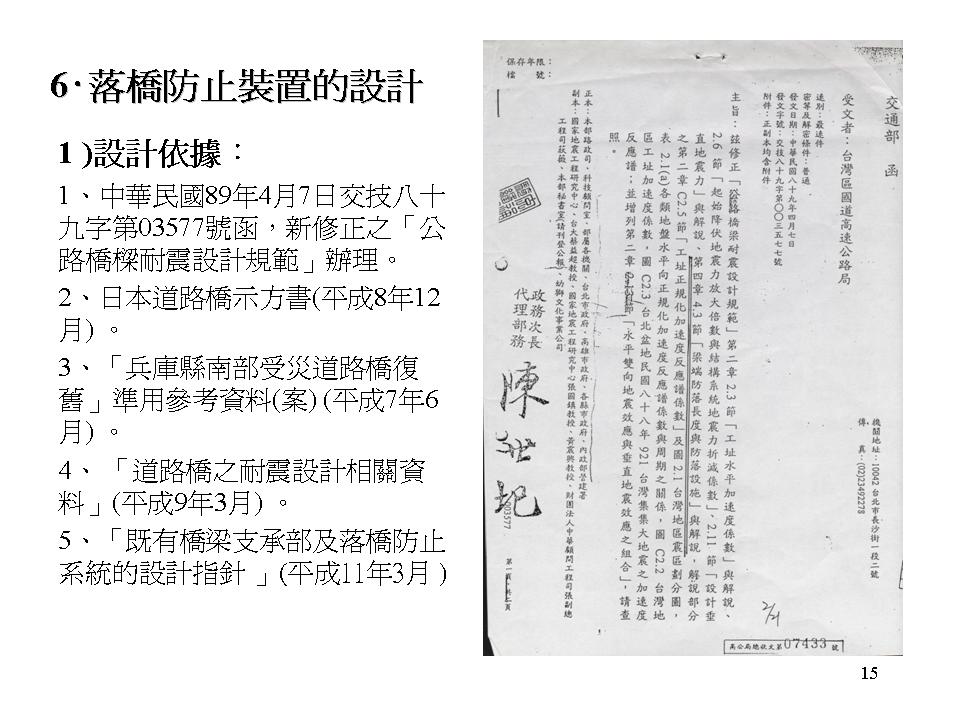 6·落橋防止裝置的設計
1 )設計依據：
1、中華民國89年4月7日交技八十
九字第03577號函，新修正之「公
路橋樑耐震設計規範」辦理。
2、日本道路橋示方書(平成8年12
月) 。
3、「兵庫縣南部受災道路橋復
舊」準用參考資料(案) (平成7年6
月) 。
4、 「道路橋之耐震設計相關資
料」(平成9年3月) 。
5、「既有橋梁支承部及落橋防止
系統的設計指針 」(平成11年3月 )
保存年限：
檔　　號：
交通部　函
機關地址：10042 台北市長沙街一段二號
傳　　真：(02)23492278
受文者：台灣區國道高速公路局
速別：最速件
密等及解密條件：普通
發文日期：中華民國八十九年四月七日
發文字號：交技八十九字第○○三五七七號
附件：正副本均含附件
主旨：茲修正「公路橋梁耐震設計規範」第二章 2.3 節「工址水平加速度係數」與解說、
2.6 節「起始降伏地震力放大倍數與結構系統地震力折減係數」、2.11 節「設計垂
直地震力」與解說、第四章 4.3 節「梁端防落長度與防落設施」與解說，解說部分
之第二章 C2.5 節「工址正規化加速度反應譜係數」及圖 2.1 台灣地區震區劃分圖，
表 2.1(a)各類地盤水平向正規化加速度反應譜係數與周期之關係，圖 C2.2 台灣地
區工址加速度係數，圖 C2.3 台北盆地民國八十八年 921 台灣集集大地震之加速度
反應譜；並增列第二章「水平雙向地震效應與垂直地震效應之組合」，請查
照。
正本：本部路政司、科技顧問室、部屬各機關、台北市政府、高雄市政府、各縣市政府、內政部營建署
副本：國家地震工程研究中心、台大蔡益超教授、國家地震工程研究中心張國鎮教授、黃震興教授、財團法人中華顧問工程司張副總
工程司荻薇、本部秘書室(請刊登公報)、幼獅文化事業公司
政務次長
代理部務
陳世圯
003577
第一頁，共二頁
2/21
高公局總收文第07433號
15